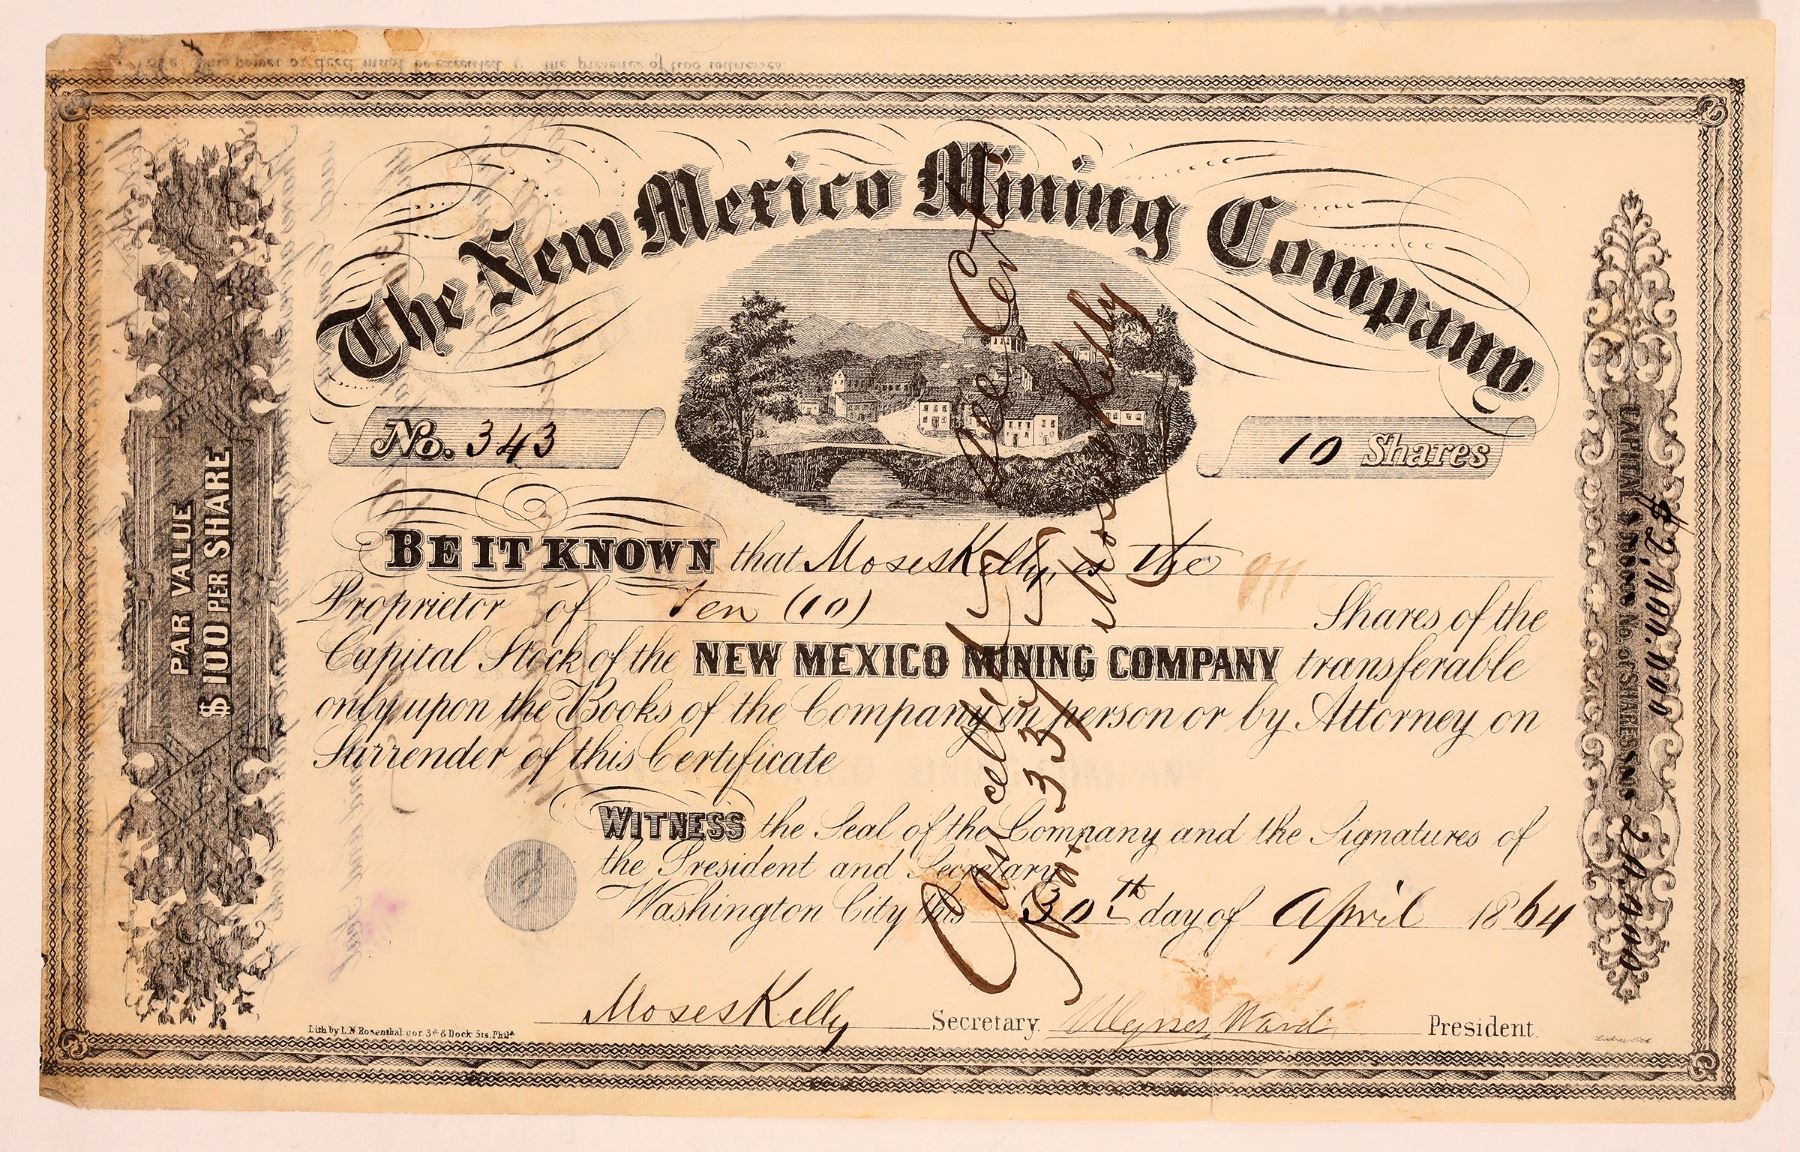 The New Mexico Mining Company
No. 343
10 Shares
PAR VALUE
$100 PER SHARE
BE IT KNOWN that Moses Kelly, is the
Proprietor of Ten (10) Shares of the
Capital Stock of the NEW MEXICO MINING COMPANY transferable
only upon the Books of the Company in person or by Attorney on
Surrender of this Certificate
WITNESS the Seal of the Company and the Signatures of
the President and Secretary
Washington City this 30th day of April 1864
Moses Kelly Secretary. President.
Lith by L.N. Rosenthal cor. 3d & Dock Sts. Phila
Cancelled
See Cert
Moses Kelly
CAPITAL No. of SHARES